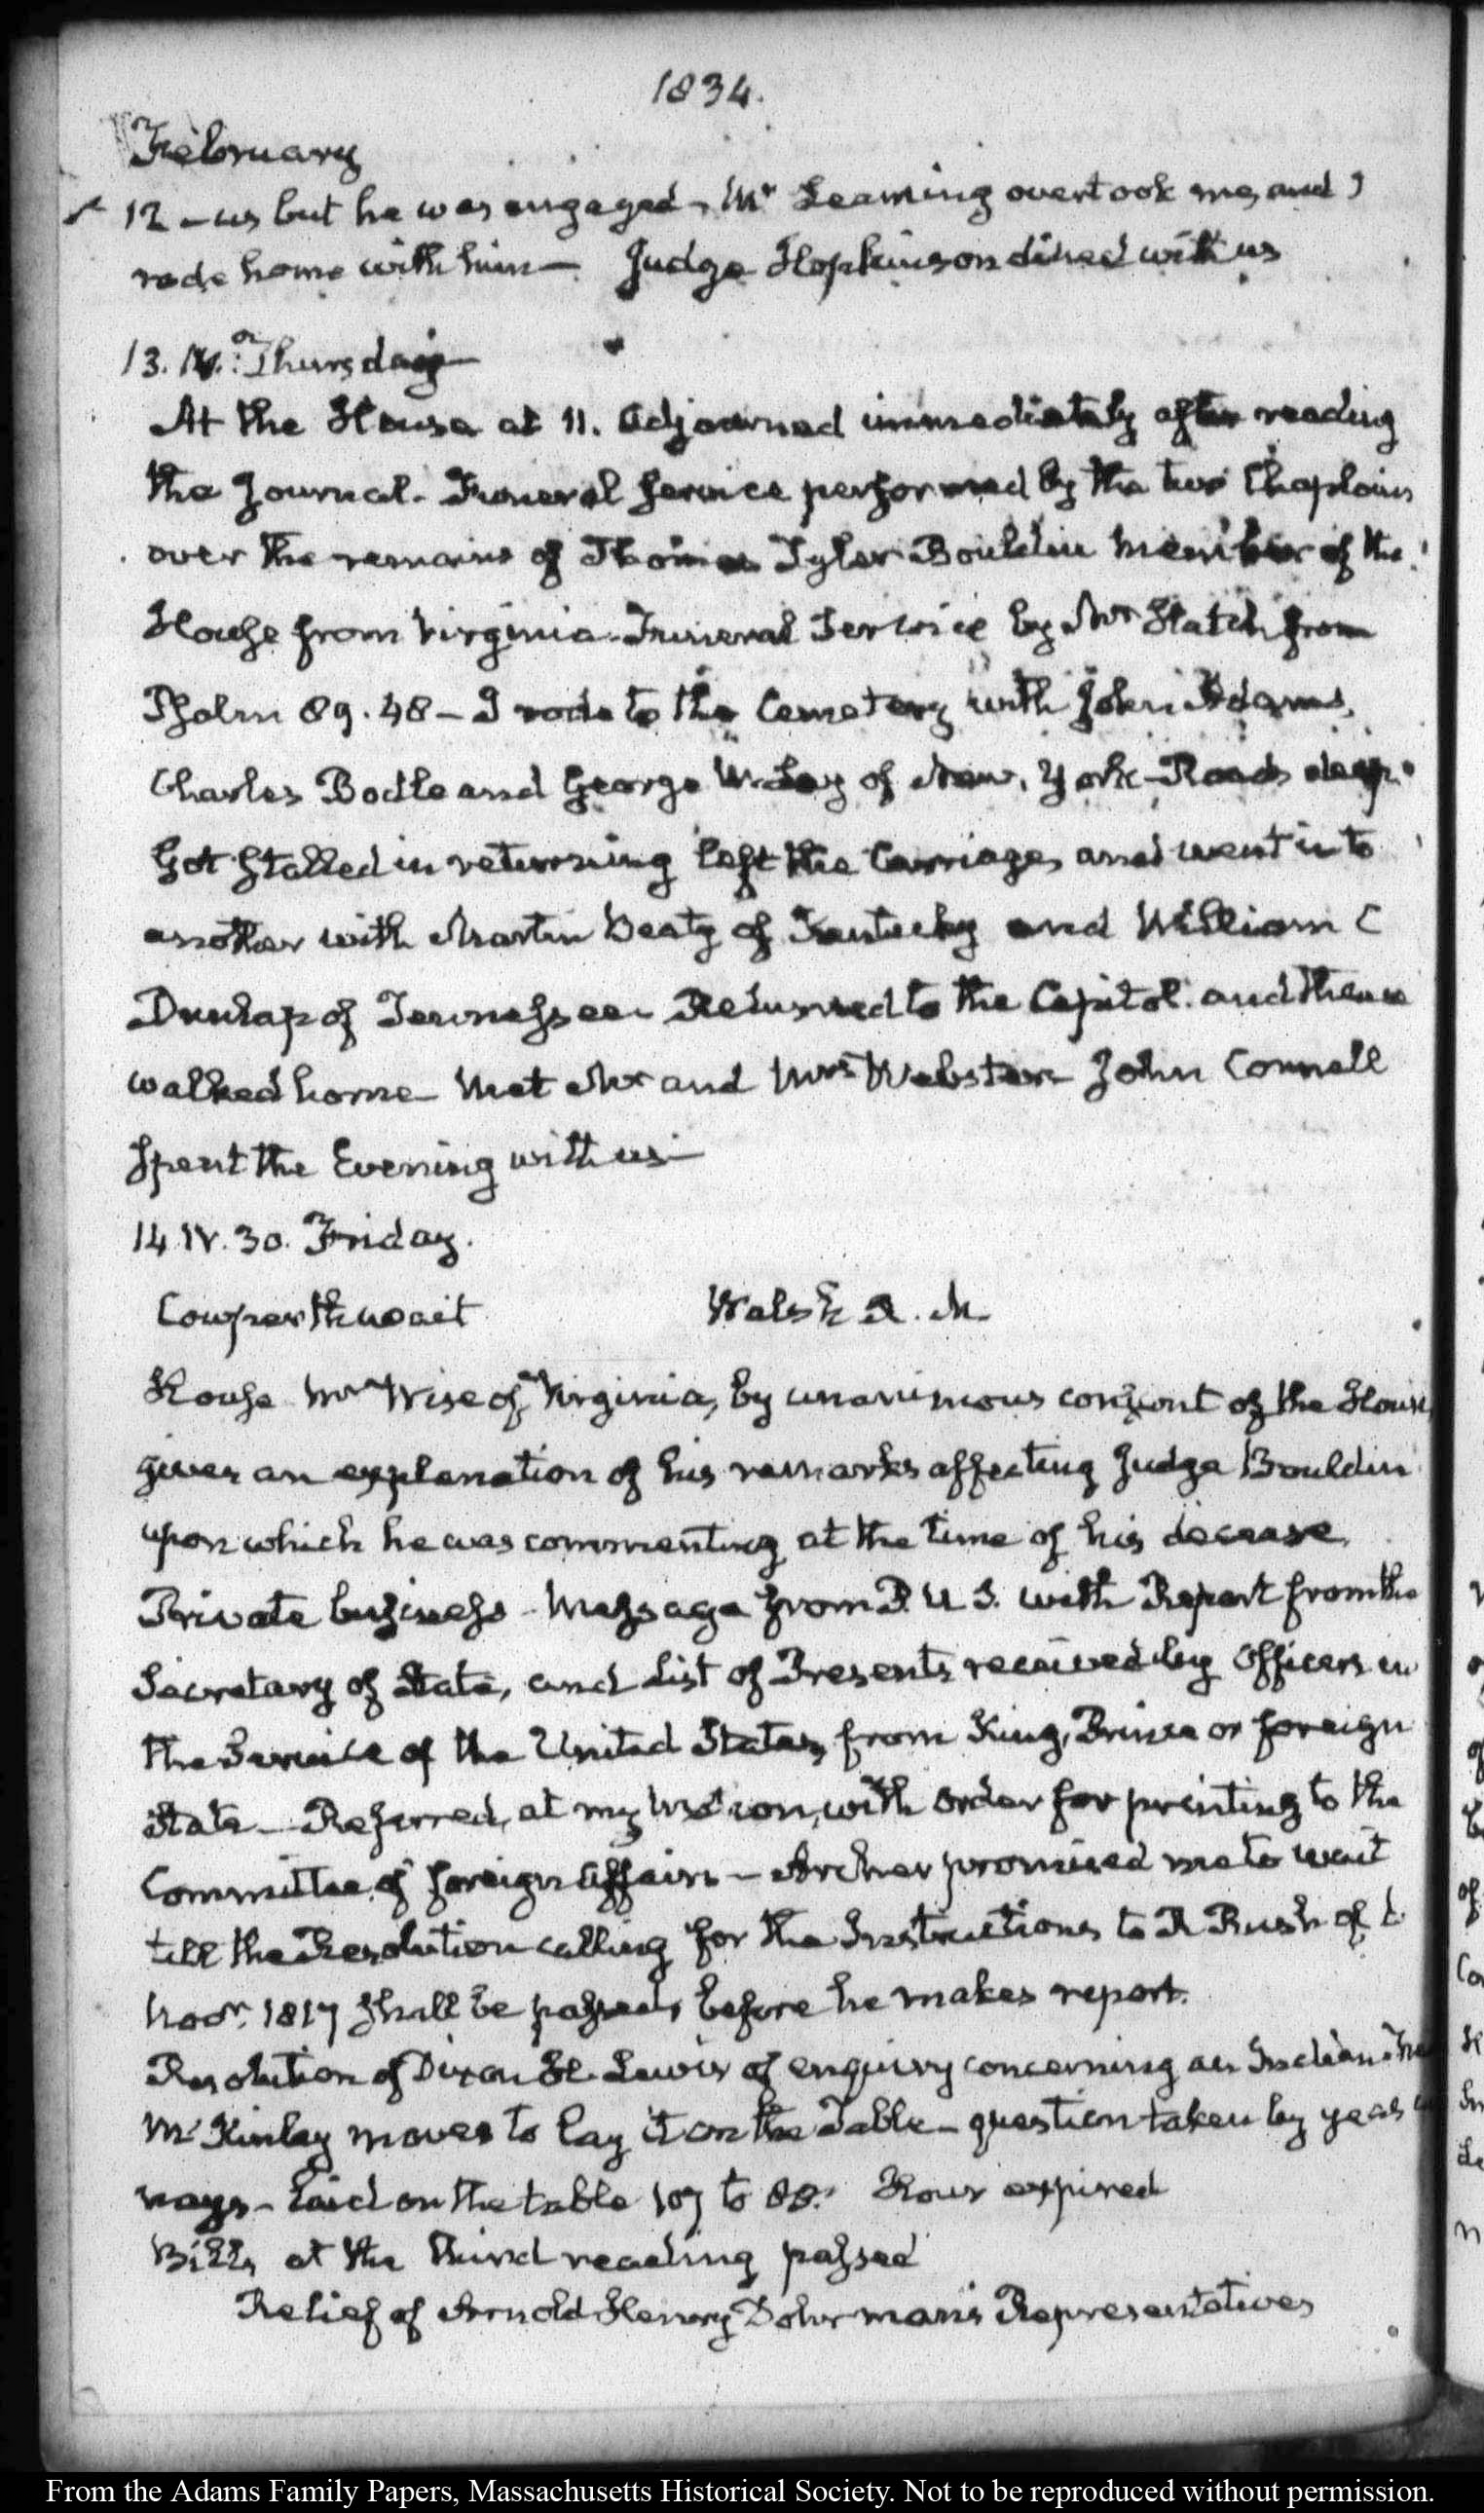 1834.
February
12 - us but he was engaged - Mr Leaming overtook me, and I
rode home with him - Judge Hopkinson dined with us
13. IV. Thursday
At the House at 11. Adjourned immediately after reading
the Journal. Funeral service performed by the two Chaplains
over the remains of Thomas Tyler Bouldin Member of the
House from Virginia. Funeral Service by Mr Hatch from
Psalm 89. 48 - I rode to the Cemetery with John Adams,
Charles Bodle and George W. Lay of New, York - Roads deep.
Got stalled in returning left the Carriage, and went into
another with Martin Beaty of Kentucky and William C
Dunlap of Tennessee. Returned to the Capitol. and thence
walked home - Met Mr and Mrs Webster - John Connell
spent the Evening with us -
14 IV. 30. Friday.
Cowperthwait Walsh R. M.
House Mr Wise of Virginia, by unanimous consent of the House,
gives an explanation of his remarks affecting Judge Bouldin
upon which he was commenting at the time of his decease.
Private business - Message from P. U. S. with Report from the
Secretary of State, and List of Presents received by Officers in
the Service of the United States, from King, Prince or foreign
State - Referred, at my motion, with order for printing to the
Committee of foreign Affairs - Archer promised me to wait
till the Resolution calling for the Instructions to R Rush of 6
Novr. 1817 shall be passed, before he makes report.
Resolution of Dixon H. Lewis of enquiry concerning an Indian
Mc Kinley moves to lay it on the Table - question taken by yeas
nays - Laid on the table 107 to 88. Hour expired
Bills, at the third reading passed
Relief of Arnold Henry Dohrman's Representatives
From the Adams Family Papers, Massachusetts Historical Society. Not to be reproduced without permission.